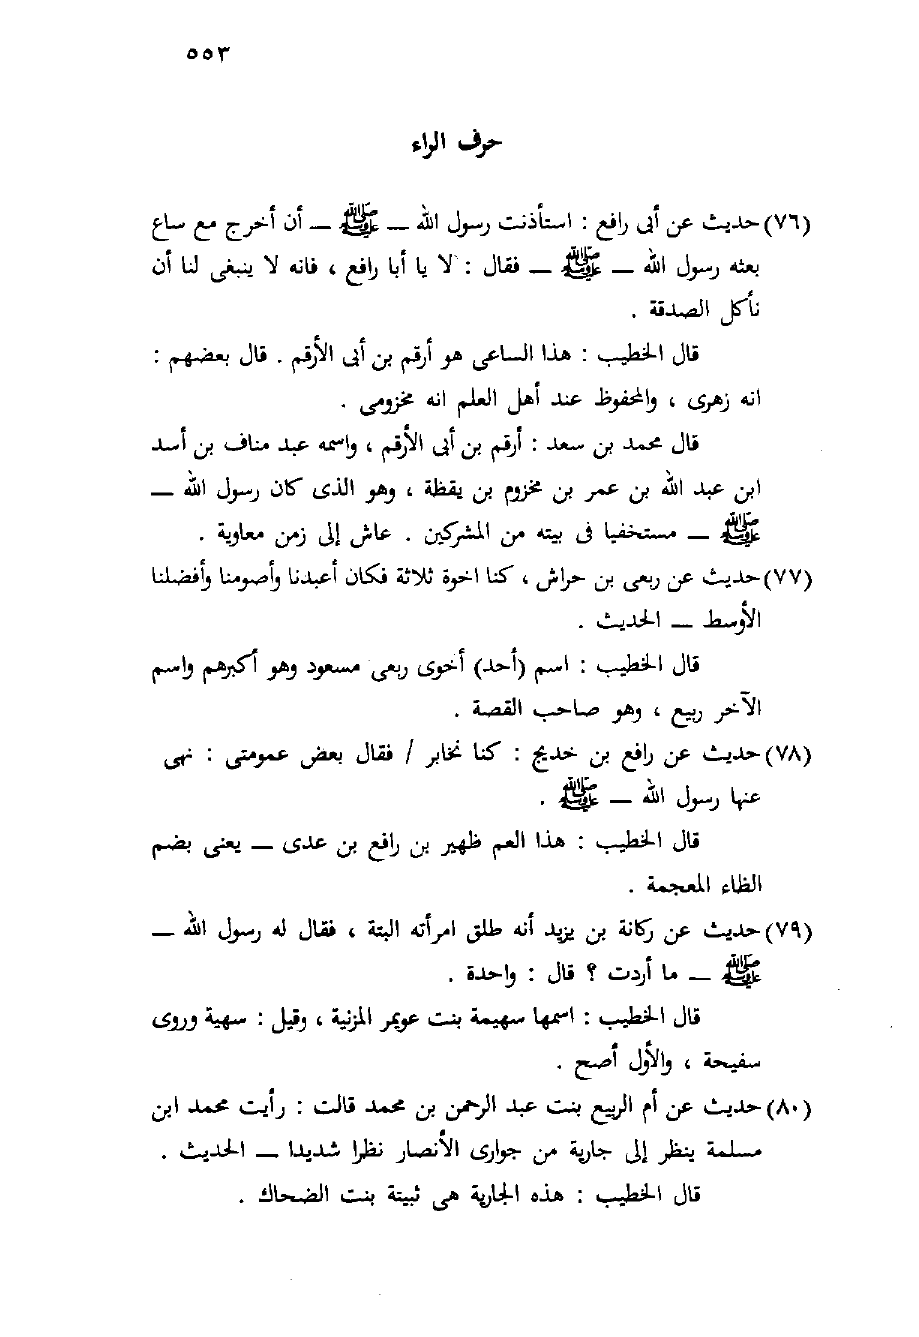 ٥٥٣
حرف الراء
(٧٦) حديث عن أبى رافع : استأذنت رسول الله ــ ﷺ ــ أن أخرج مع ساع
بعثه رسول الله ــ ﷺ ــ فقال : لا يا أبا رافع ، فانه لا ينبغى لنا أن
نأكل الصدقة .
قال الخطيب : هذا الساعى هو أرقم بن أبى الأرقم . قال بعضهم :
انه زهرى ، والمحفوظ عند أهل العلم انه مخزومى .
قال محمد بن سعد : أرقم بن أبى الأرقم ، واسمه عبد مناف بن أسد
ابن عبد الله بن عمر بن مخزوم بن يقظة ، وهو الذى كان رسول الله ــ
ﷺ ــ مستخفيا فى بيته من المشركين . عاش إلى زمن معاوية .
(٧٧) حديث عن ربعى بن حراش ، كنا اخوة ثلاثة فكان أعبدنا وأصومنا وأفضلنا
الأوسط ــ الحديث .
قال الخطيب : اسم (أحد) أخوى ربعى مسعود وهو أكبرهم واسم
الآخر ربيع ، وهو صاحب القصة .
(٧٨) حديث عن رافع بن خديج : كنا نخابر / فقال بعض عمومتى : نهى
عنها رسول الله ــ ﷺ .
قال الخطيب : هذا العم ظهير بن رافع بن عدى ــ يعنى بضم
الظاء المعجمة .
(٧٩) حديث عن ركانة بن يزيد أنه طلق امرأته البتة ، فقال له رسول الله ــ
ﷺ ــ ما أردت ؟ قال : واحدة .
قال الخطيب : اسمها سهيمة بنت عويمر المزنية ، وقيل : سهية وروى
سفيحة ، والأول أصح .
(٨٠) حديث عن أم الربيع بنت عبد الرحمن بن محمد قالت : رأيت محمد ابن
مسلمة ينظر إلى جارية من جوارى الأنصار نظرا شديدا ــ الحديث .
قال الخطيب : هذه الجارية هى ثبيتة بنت الضحاك .